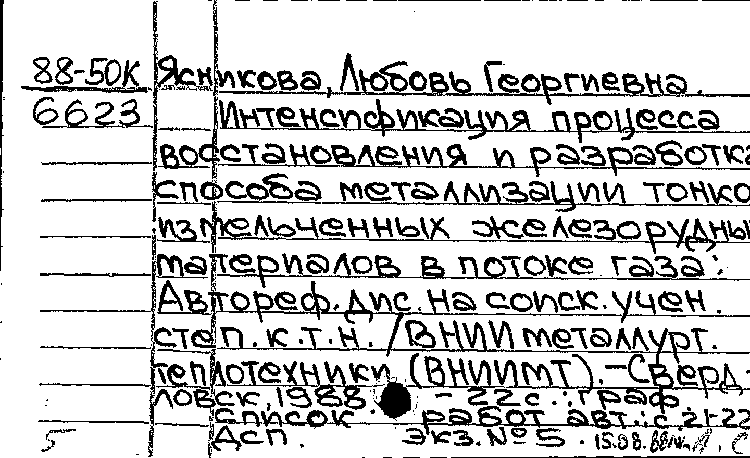 88-50К Ясникова, Любовь Георгиевна.
6623 Интенсификация процесса
восстановления и разработка
способа металлизации тонко
измельченных железорудны
материалов в потоке газа:
Автореф. дис. на соиск. учен.
степ. к.т.н. / ВНИИ металлург.
теплотехники (ВНИИМТ). – Сверд-
ловск, 1988. – 22 с.: граф.
список работ авт.: с. 21-22
5 Дсп. Экз. № 5.